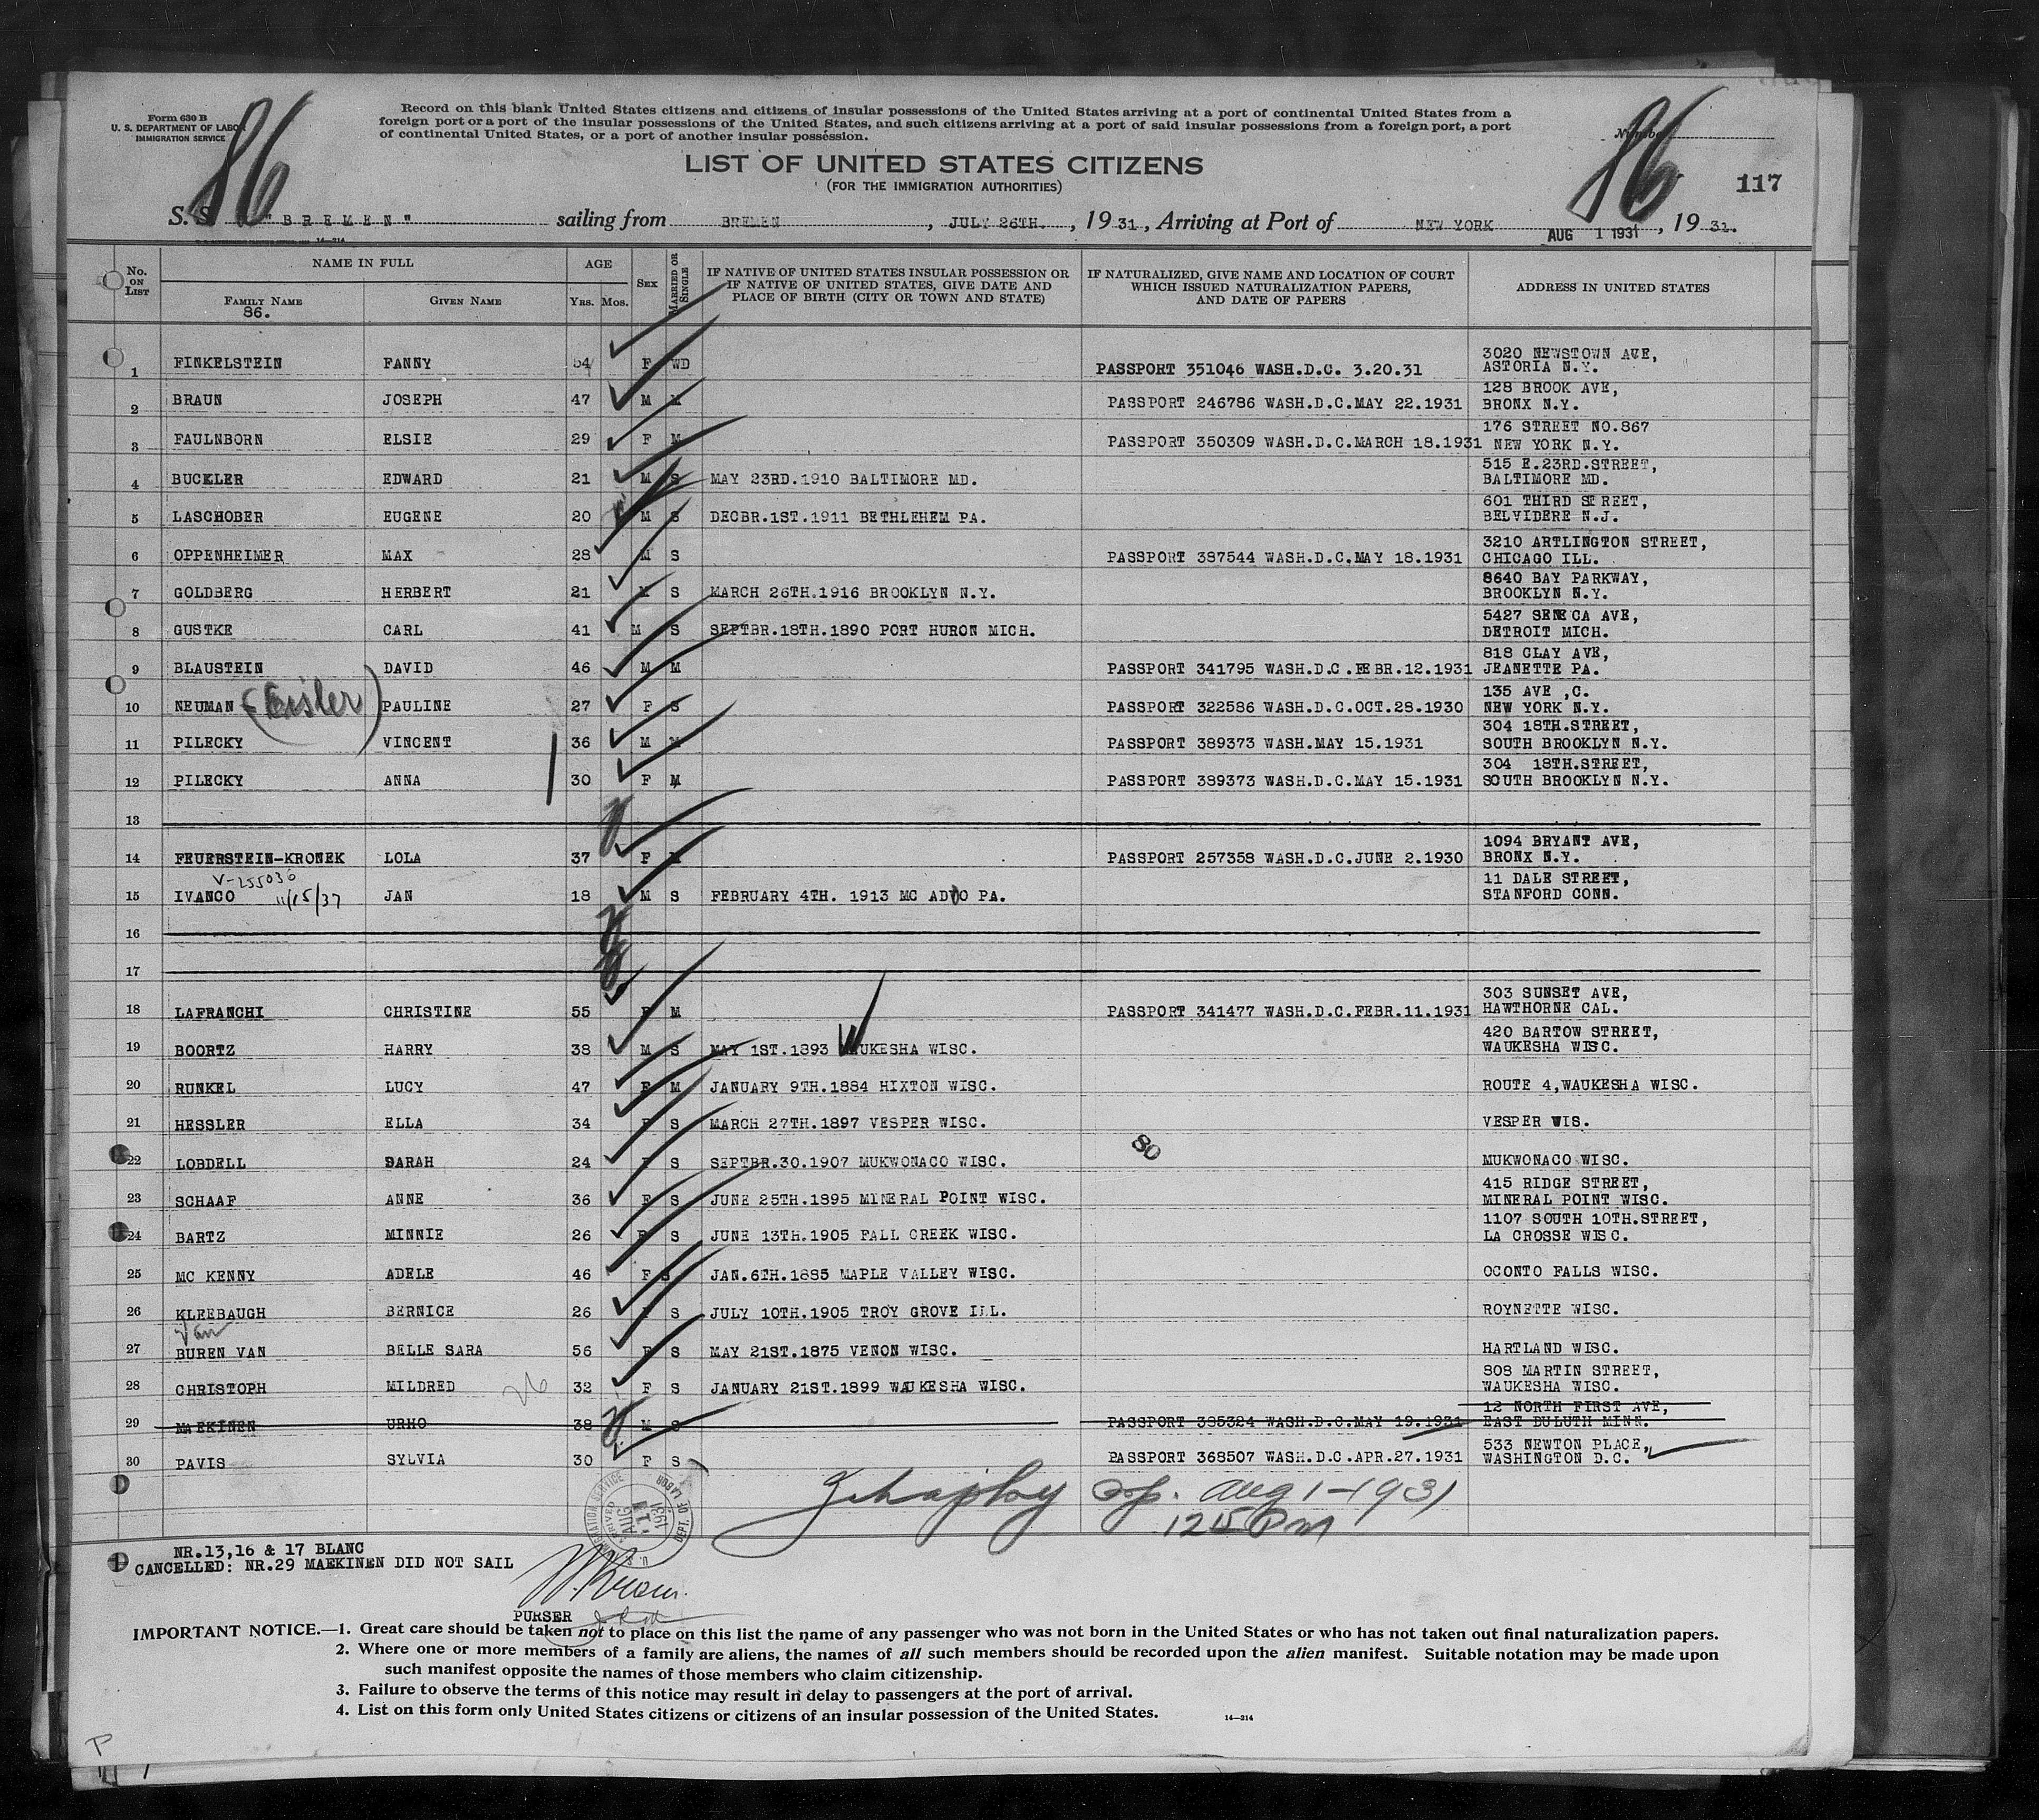 Form 630 B
U. S. DEPARTMENT OF LABOR
IMMIGRATION SERVICE
86
Record on this blank United States citizens and citizens of insular possessions of the United States arriving at a port of continental United States from a
foreign port or a port of the insular possessions of the United States, and such citizens arriving at a port of said insular possessions from a foreign port, a port
of continental United States, or a port of another insular possession.
Number
86
117
LIST OF UNITED STATES CITIZENS
(FOR THE IMMIGRATION AUTHORITIES)
S. S. "BREMEN" sailing from BREMEN, JULY 26TH., 1931, Arriving at Port of NEW YORK AUG 1 1931, 1931.
No. ON LIST NAME IN FULL AGE SEX MARRIED OR SINGLE IF NATIVE OF UNITED STATES INSULAR POSSESSION OR IF NATIVE OF UNITED STATES, GIVE DATE AND PLACE OF BIRTH (CITY OR TOWN AND STATE) IF NATURALIZED, GIVE NAME AND LOCATION OF COURT WHICH ISSUED NATURALIZATION PAPERS, AND DATE OF PAPERS ADDRESS IN UNITED STATES
FAMILY NAME GIVEN NAME YRS. MOS.
86.
1 FINKELSTEIN FANNY 54 F WD PASSPORT 351046 WASH.D.C. 3.20.31 3020 NEWSTOWN AVE, ASTORIA N.Y.
2 BRAUN JOSEPH 47 M M PASSPORT 246786 WASH.D.C.MAY 22.1931 128 BROOK AVE, BRONX N.Y.
3 FAULNBORN ELSIE 29 F M PASSPORT 350309 WASH.D.C.MARCH 18.1931 176 STREET NO.867 NEW YORK N.Y.
4 BUCKLER EDWARD 21 M S MAY 23RD.1910 BALTIMORE MD. 515 E.23RD.STREET, BALTIMORE MD.
5 LASCHOBER EUGENE 20 M S DECBR.1ST.1911 BETHLEHEM PA. 601 THIRD STREET, BELVIDERE N.J.
6 OPPENHEIMER MAX 28 M S PASSPORT 387544 WASH.D.C.MAY 18.1931 3210 ARTLINGTON STREET, CHICAGO ILL.
7 GOLDBERG HERBERT 21 M S MARCH 26TH.1916 BROOKLYN N.Y. 8640 BAY PARKWAY, BROOKLYN N.Y.
8 GUSTKE CARL 41 M S SEPTBR.18TH.1890 PORT HURON MICH. 5427 SENECA AVE, DETROIT MICH.
9 BLAUSTEIN DAVID 46 M M PASSPORT 341795 WASH.D.C.FEBR.12.1931 818 CLAY AVE, JEANETTE PA.
10 NEUMAN (Eisler) PAULINE 27 F S PASSPORT 322586 WASH.D.C.OCT.28.1930 135 AVE ,C. NEW YORK N.Y.
11 PILECKY VINCENT 36 M M PASSPORT 389373 WASH.MAY 15.1931 304 18TH.STREET, SOUTH BROOKLYN N.Y.
12 PILECKY ANNA 30 F M PASSPORT 389373 WASH.D.C.MAY 15.1931 304 18TH.STREET, SOUTH BROOKLYN N.Y.
13
14 FEUERSTEIN-KRONEK LOLA 37 F M PASSPORT 257358 WASH.D.C.JUNE 2.1930 1094 BRYANT AVE, BRONX N.Y.
V-255036
15 IVANCO 11/15/37 JAN 18 M S FEBRUARY 4TH. 1913 MC ADOO PA. 11 DALE STREET, STANFORD CONN.
16
17
18 LAFRANCHI CHRISTINE 55 F M PASSPORT 341477 WASH.D.C.FEBR.11.1931 303 SUNSET AVE, HAWTHORNE CAL.
19 BOORTZ HARRY 38 M S MAY 1ST.1893 WAUKESHA WISC. 420 BARTOW STREET, WAUKESHA WISC.
20 RUNKEL LUCY 47 F M JANUARY 9TH.1884 HIXTON WISC. ROUTE 4,WAUKESHA WISC.
21 HESSLER ELLA 34 F S MARCH 27TH.1897 VESPER WISC. VESPER WIS.
80
22 LOBDELL SARAH 24 F S SEPTBR.30.1907 MUKWONACO WISC. MUKWONACO WISC.
23 SCHAAF ANNE 36 F S JUNE 25TH.1895 MINERAL POINT WISC. 415 RIDGE STREET, MINERAL POINT WISC.
24 BARTZ MINNIE 26 F S JUNE 13TH.1905 FALL CREEK WISC. 1107 SOUTH 10TH.STREET, LA CROSSE WISC.
25 MC KENNY ADELE 46 F S JAN.6TH.1885 MAPLE VALLEY WISC. OCONTO FALLS WISC.
26 KLEEBAUGH BERNICE 26 F S JULY 10TH.1905 TROY GROVE ILL. ROYNETTE WISC.
Van
27 BUREN VAN BELLE SARA 56 F S MAY 21ST.1875 VENON WISC. HARTLAND WISC.
28 CHRISTOPH MILDRED 26 32 F S JANUARY 21ST.1899 WAUKESHA WISC. 808 MARTIN STREET, WAUKESHA WISC.
29 MAEKINEN URHO 38 M S PASSPORT 385324 WASH.D.C.MAY 19.1931 12 NORTH FIRST AVE, EAST DULUTH MINN.
30 PAVIS SYLVIA 30 F S PASSPORT 368507 WASH.D.C.APR.27.1931 533 NEWTON PLACE, WASHINGTON D.C.
Aug 1-1931
1215 Pm
U. S. IMMIGRATION SERVICE DEPT. OF LABOR
ARRIVED AUG 1 1931
NR.13,16 & 17 BLANC
CANCELLED: NR.29 MAEKINEN DID NOT SAIL
PURSER
IMPORTANT NOTICE.—1. Great care should be taken not to place on this list the name of any passenger who was not born in the United States or who has not taken out final naturalization papers.
2. Where one or more members of a family are aliens, the names of all such members should be recorded upon the alien manifest. Suitable notation may be made upon
such manifest opposite the names of those members who claim citizenship.
3. Failure to observe the terms of this notice may result in delay to passengers at the port of arrival.
4. List on this form only United States citizens or citizens of an insular possession of the United States.
14—214
P